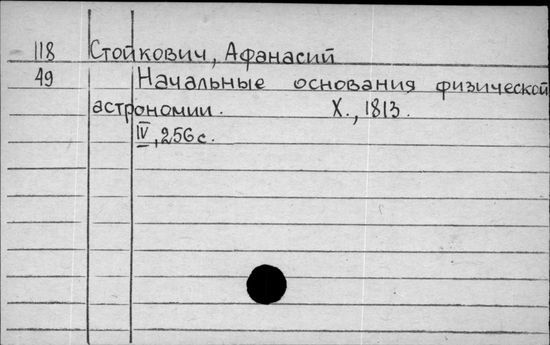 118 Стойкович, Афанасий
49 Начальные основания физической
астрономии. Х., 1813.
IV, 256 с.